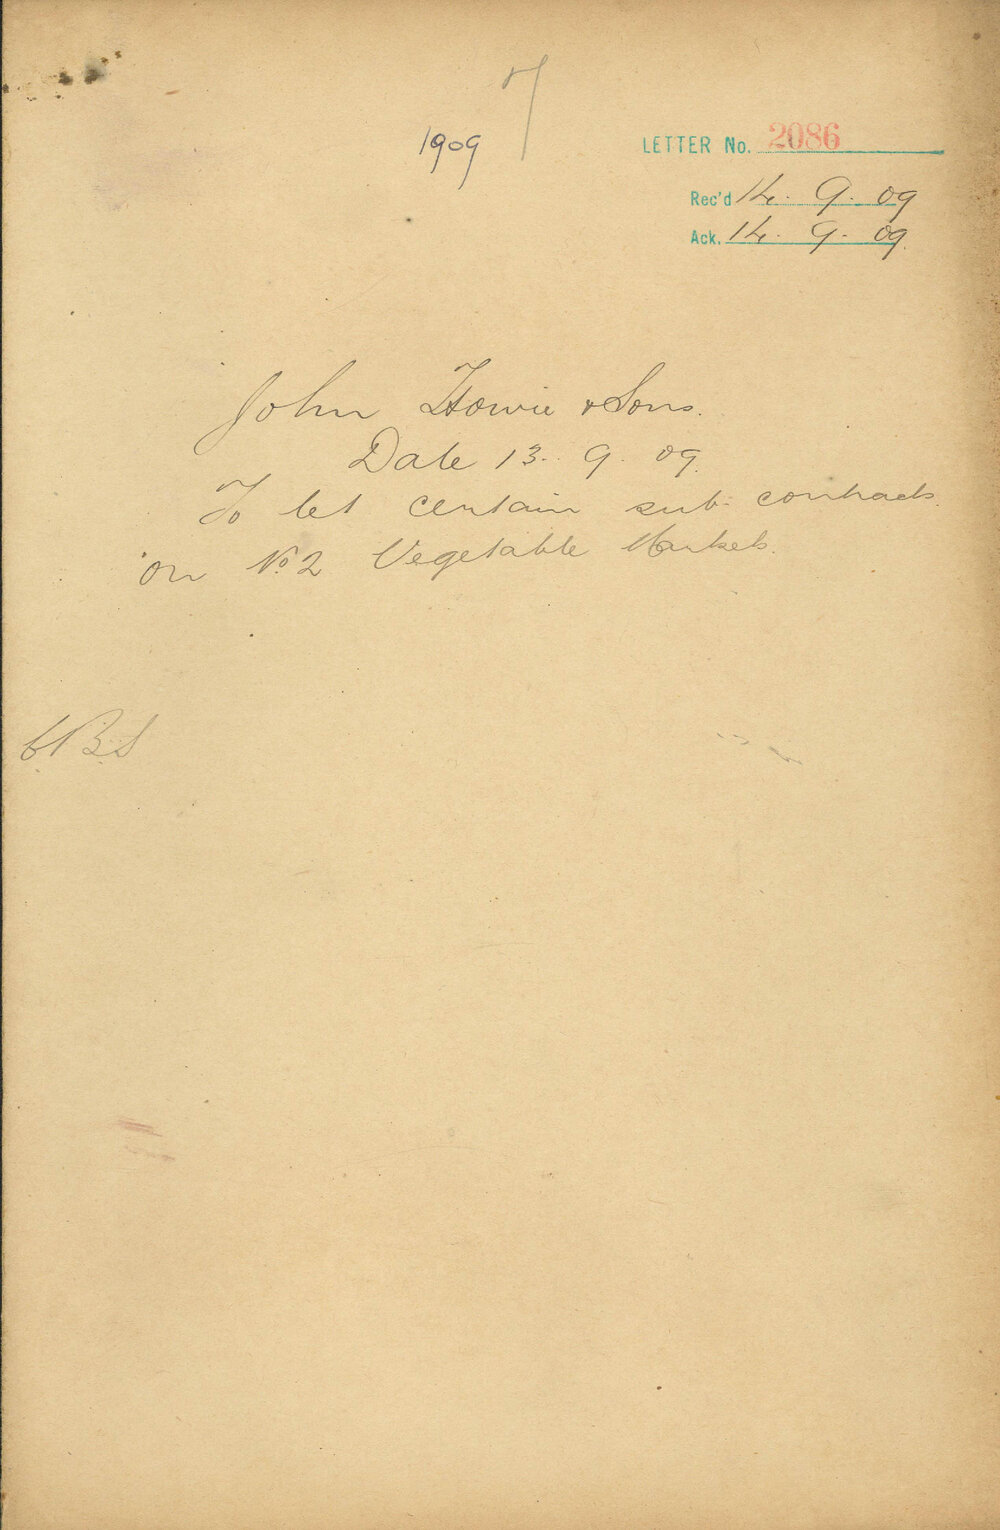 1909
LETTER No. 2086
Rec'd 14. 9. 09
Ack. 14. 9. 09
John Howie & Sons.
Date 13. 9. 09.
To let certain sub. contracts.
on No 2 Vegetable Markets.